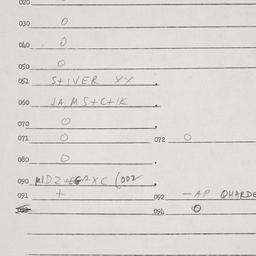 020
030 0
040 0
050 0
051 S+IVER XX.
060 JA, M S+C+IK.
070 0.
071 0. 072 0
080 0.
090 MIDZ (002.
091 + 092 -AP QHARDE
094 0